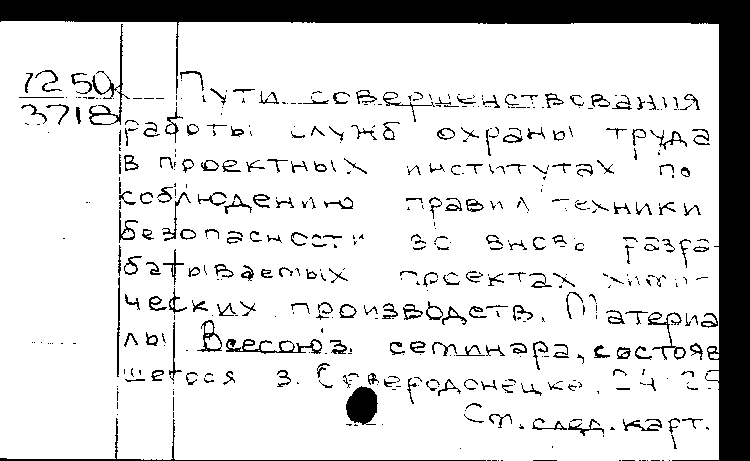 1250к Пути совершенствования
3718 работы служб охраны труда
в проектных институтах по
соблюдению правил техники
безопасности во вновь разра-
батываемых проектах хими-
ческих производств. Материа
лы Всесоюз. семинара, состояв
шегося в. Северодонецке. 24-25
См. след. карт.